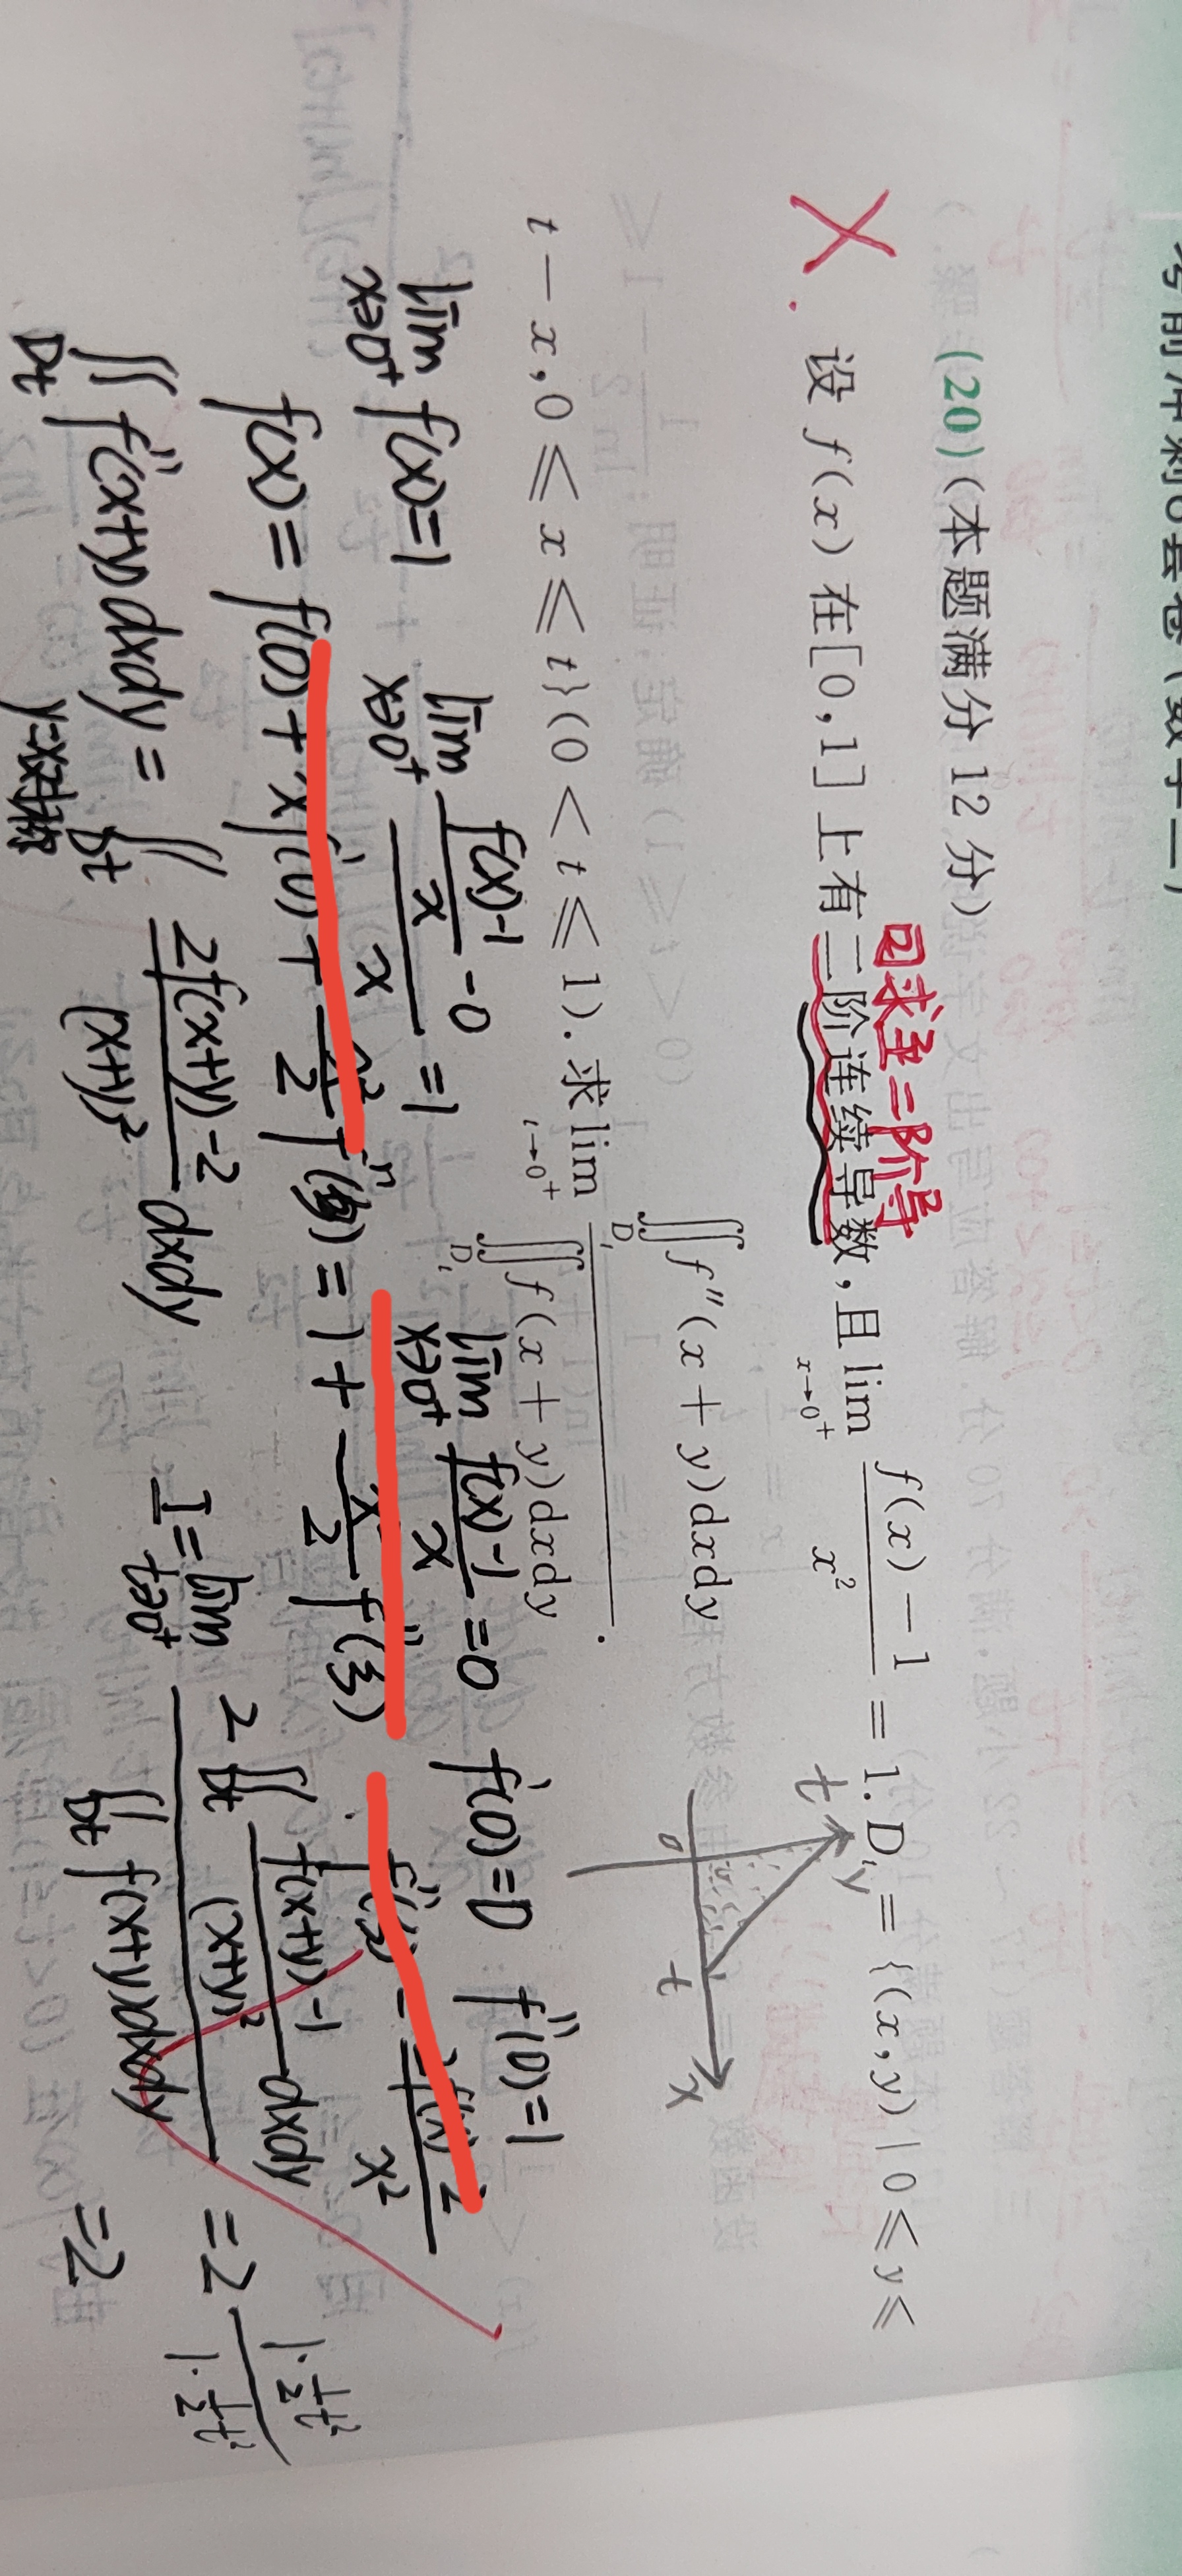 考前冲刺6套卷(数学二)
(20)(本题满分12分)
可求至二阶导
设 f(x) 在[0,1]上有二阶连续导数,且 lim x→0⁺ (f(x)−1)/x² = 1. Dₜ = {(x,y) | 0 ≤ y ≤
t − x, 0 ≤ x ≤ t}(0 < t ≤ 1). 求 lim t→0⁺ ∬Dₜ f″(x + y)dxdy / ∬Dₜ f(x + y)dxdy .
t y
0 t x
lim x→0⁺ f(x)=1 lim x→0⁺ ((f(x)-1)/x - 0)/x =1 lim x→0⁺ (f(x)-1)/x =0 f'(0)=0 f''(0)=1
f(x)= f(0)+ x f'(0)+ x²/2 f''(ξ) = 1+ x/2 f''(ξ) f''(ξ) = (2f(x)-2)/x²
∬Dt f''(x+y)dxdy = ∬Dt (2f(x+y)-2)/(x+y)² dxdy I = lim t→0⁺ 2∬Dt (f(x+y)-1)/(x+y)² dxdy / ∬Dt f(x+y)dxdy = 2 (1·½t²)/(1·½t²)
=2